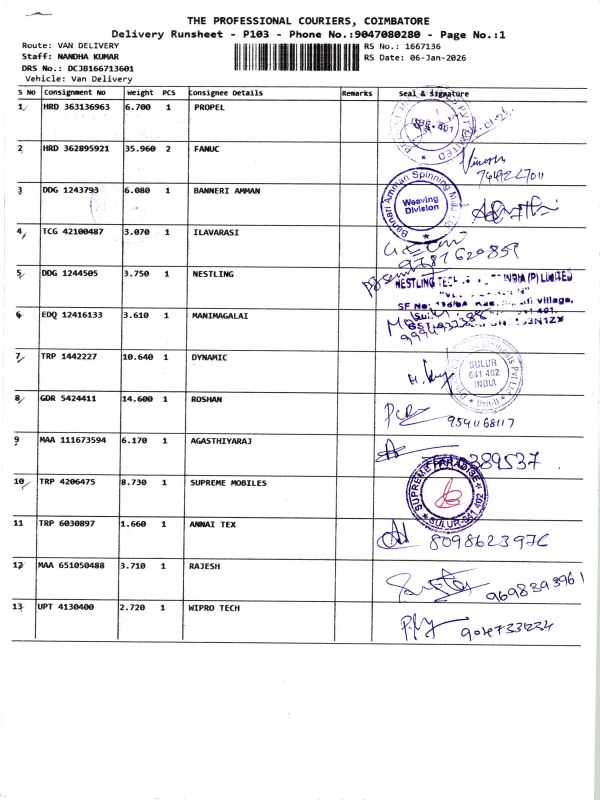 THE PROFESSIONAL COURIERS, COIMBATORE
Delivery Runsheet - P103 - Phone No.:9047080280 - Page No.:1
Route: VAN DELIVERY RS No.: 1667136
Staff: NANDHA KUMAR RS Date: 06-Jan-2026
DRS No.: DCJB166713601
Vehicle: Van Delivery
S No Consignment No Weight PCS Consignee Details Remarks Seal & Signature
1 HRD 363136963 6.700 1 PROPEL
2 HRD 362895921 35.960 2 FANUC
3 DDG 1243793 6.080 1 BANNERI AMMAN Bannari Amman Spinning Weaving Division
4 TCG 42100487 3.070 1 ILAVARASI 9787620859
5 DDG 1244505 3.750 1 NESTLING NESTLING INDIA (P) LIMITED
SF No: Village,
6 EDQ 12416133 3.610 1 MANIMAGALAI
7 TRP 1442227 10.640 1 DYNAMIC SULUR 641 402 INDIA Unit-II
8 GDR 5424411 14.600 1 ROSHAN
9 MAA 111673594 6.170 1 AGASTHIYARAJ 389537
10 TRP 4206475 8.730 1 SUPREME MOBILES SUPREME PARADISE SULUR-641 402
11 TRP 6030897 1.660 1 ANNAI TEX 8098623976
12 MAA 651050488 3.710 1 RAJESH 9698393961
13 UPT 4130400 2.720 1 WIPRO TECH